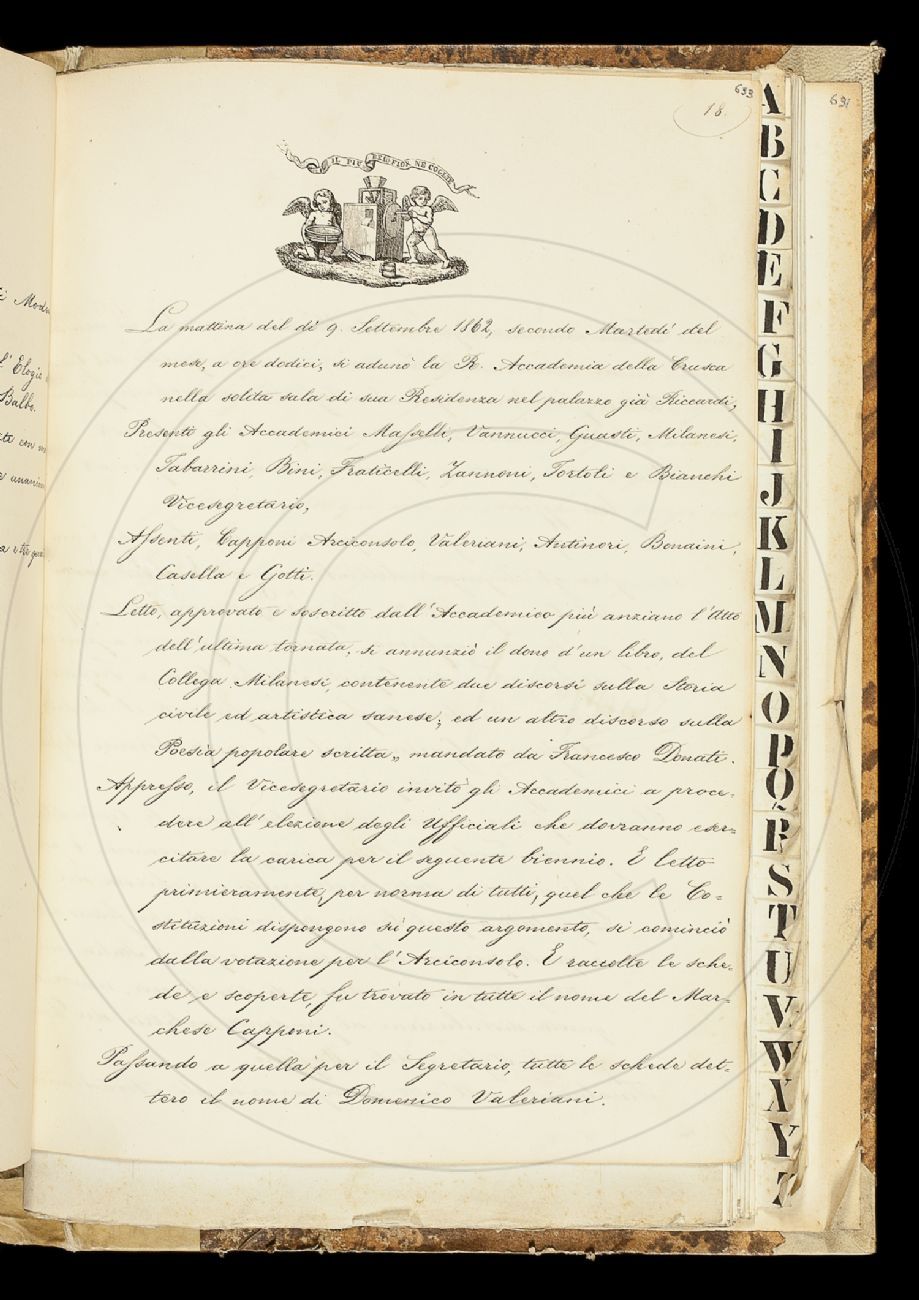 633
18.
631
IL PIÙ BEL FIOR NE COGLIE
La mattina del dì 9. Settembre 1862, secondo Martedì del
mese, a ore dodici, si adunò la R. Accademia della Crusca
nella solita sala di sua Residenza nel palazzo già Riccardi,
Presenti gli Accademici Masselli, Vannucci, Guasti, Milanesi,
Tabarrini, Bini, Fraticelli, Zannoni, Tortoli e Bianchi
Vicesegretario,
Assenti, Capponi Arciconsolo, Valeriani, Antinori, Bonaini,
Casella e Gotti.
Letto, approvato e soscritto dall'Accademico più anziano l'Atto
dell'ultima tornata, si annunziò il dono d'un libro, del
Collega Milanesi, contenente due discorsi sulla Storia
civile ed artistica sanese; ed un altro discorso sulla
Poesia popolare scritta„ mandato da Francesco Donati.
Appresso, il Vicesegretario invitò gli Accademici a proce=
dere all'elezione degli Ufficiali che dovranno eser=
citare la carica per il seguente biennio. E letto
primieramente, per norma di tutti, quel che le Co=
stituzioni dispongono su questo argomento, si cominciò
dalla votazione per l'Arciconsolo. E raccolte le sche=
de e scoperte, fu trovato in tutte il nome del Mar=
chese Capponi.
Passando a quella per il Segretario, tutte le schede det=
tero il nome di Domenico Valeriani.
l'Elogio
Balbo.
A
B
C
D
E
F
G
H
I
J
K
L
M
N
O
P
Q
R
S
T
U
V
W
X
Y
Z